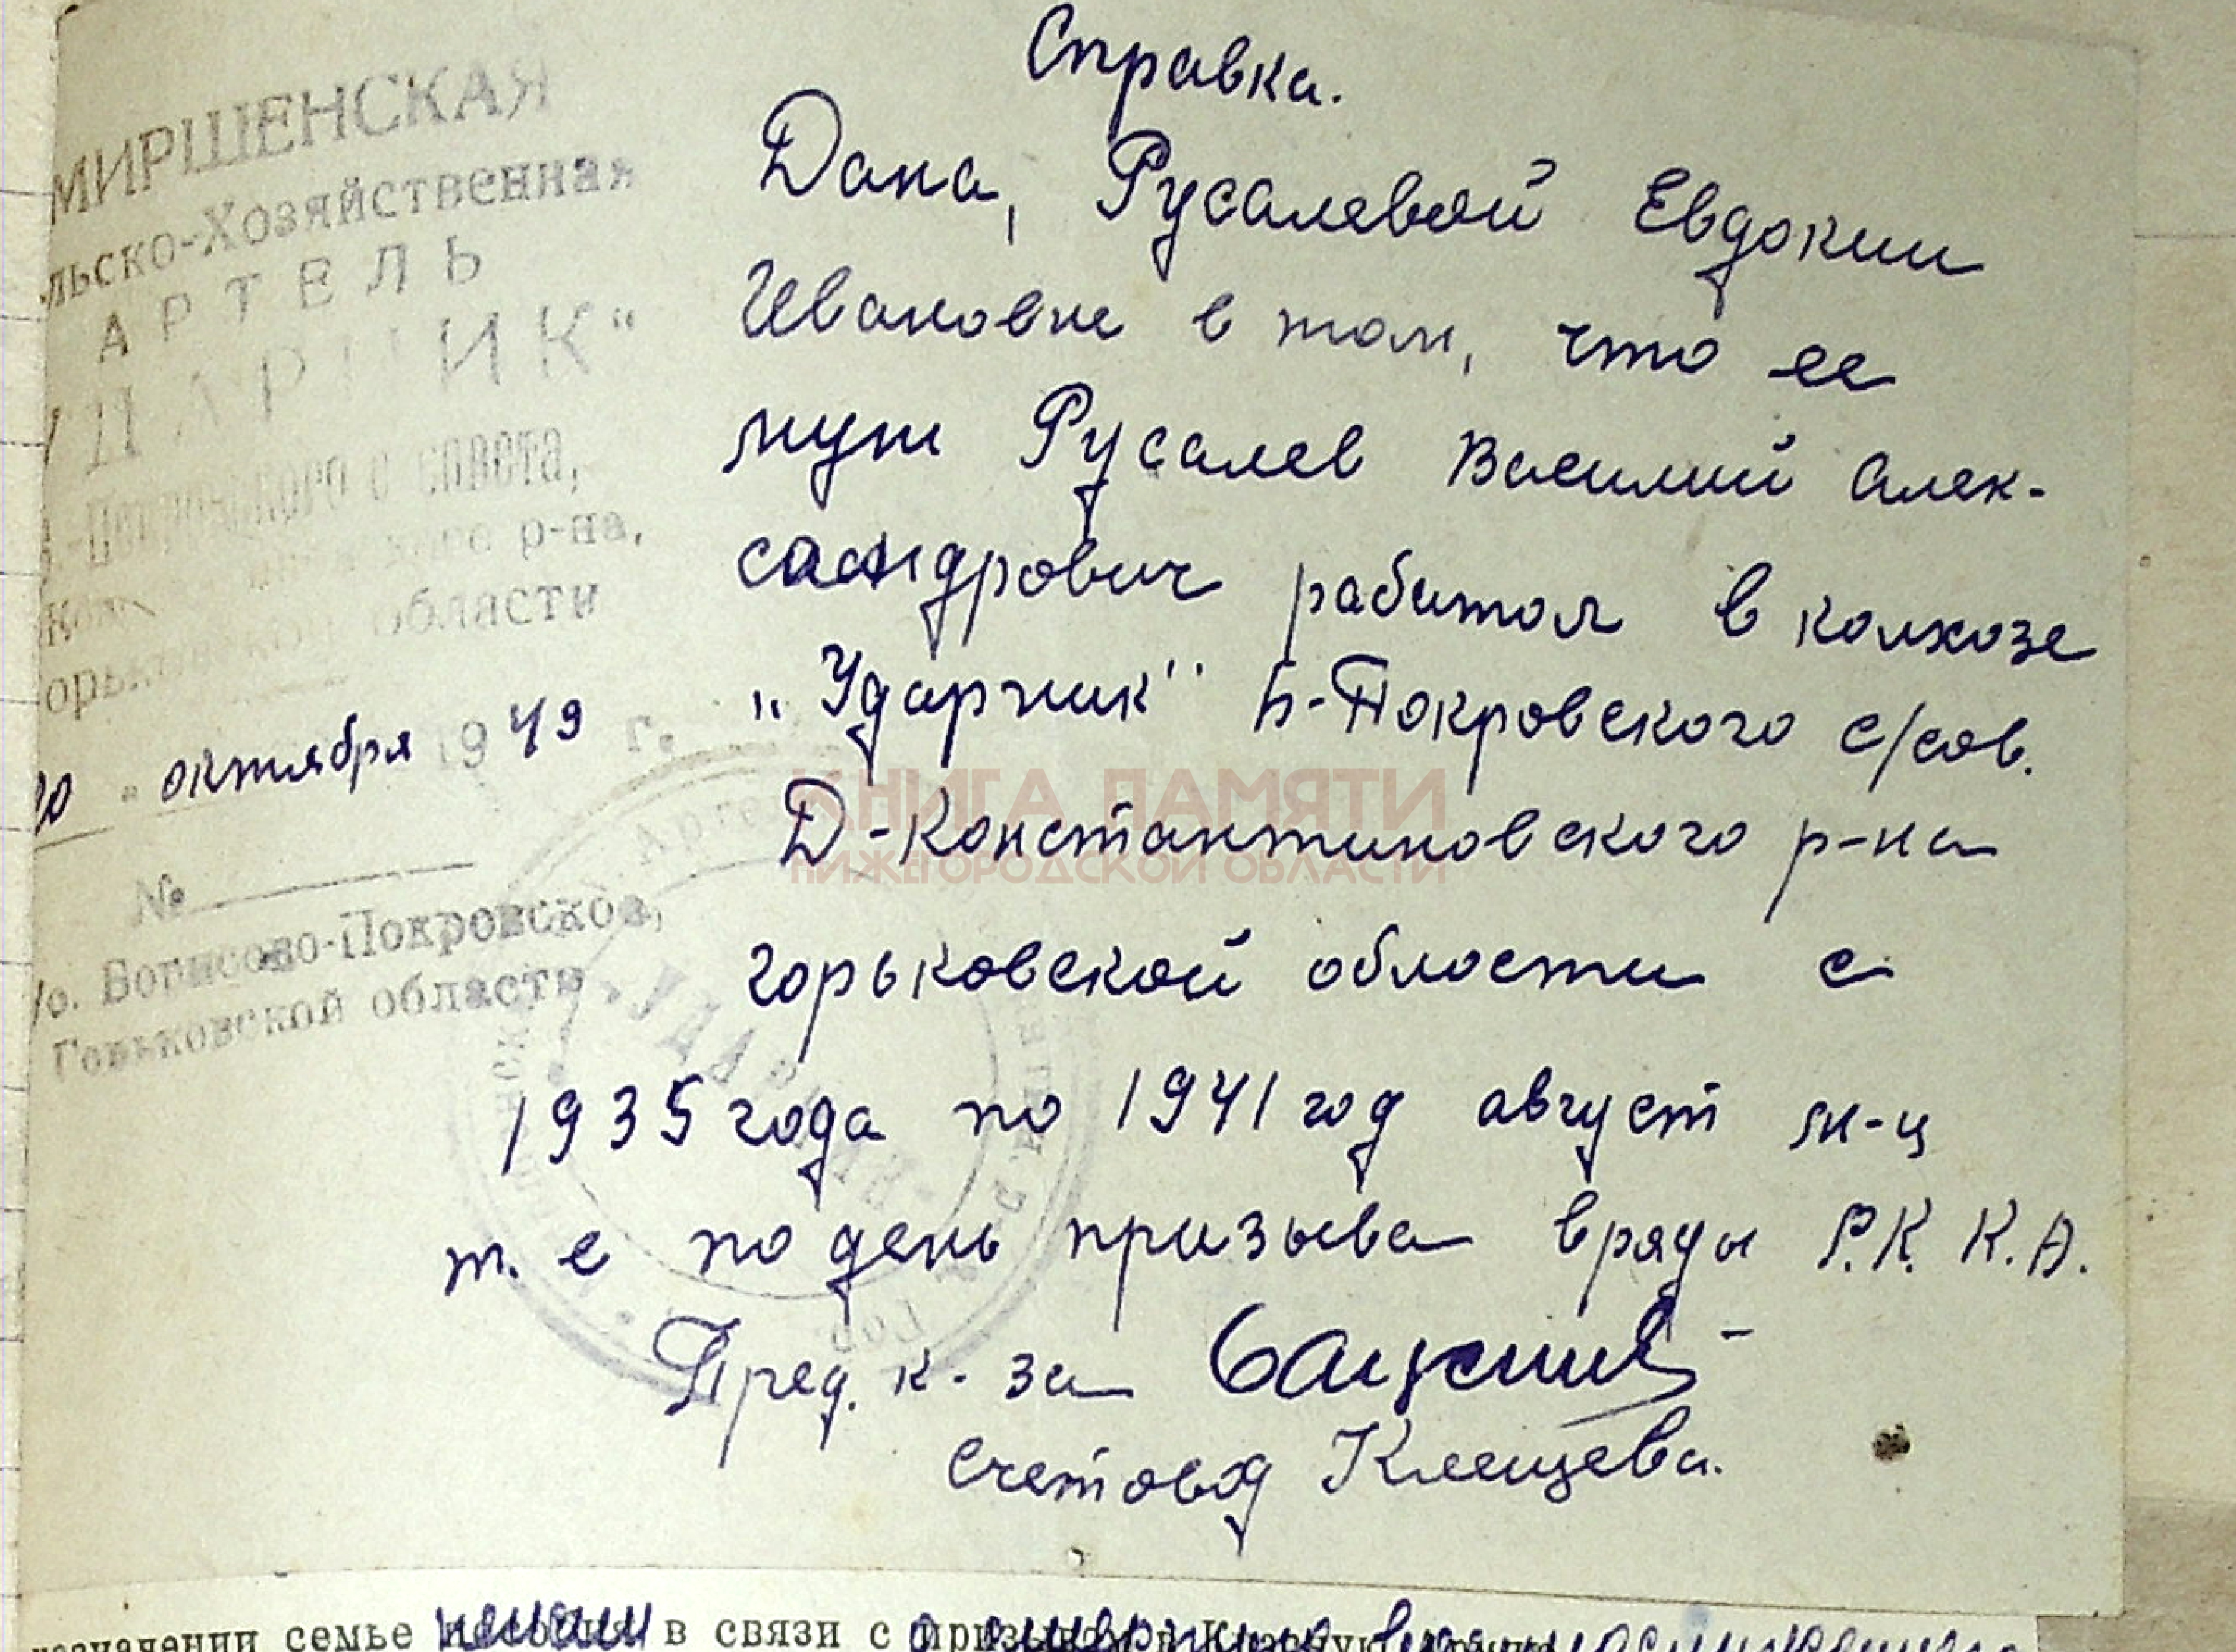 Справка.
Дана, Русалевой Евдокии
Ивановне в том, что ее
муж Русалев Василий Алек-
сандрович работал в колхозе
„Ударник" Б-Покровского с/сов.
Д-Константиновского р-на
горьковской области с
1935 года по 1941 год август м-ц
т. е по день призыва в ряды Р.К.К.А.
Пред. к-за
счетовод Клещева.
МИРШЕНСКАЯ
льско-Хозяйственная
АРТЕЛЬ
УДАРНИК"
с совета,
р-на,
области
октября 1949 г.
№
п/о. Борисово-Покровское,
Горьковской области
КНИГА ПАМЯТИ
НИЖЕГОРОДСКОЙ ОБЛАСТИ
семье в связи с